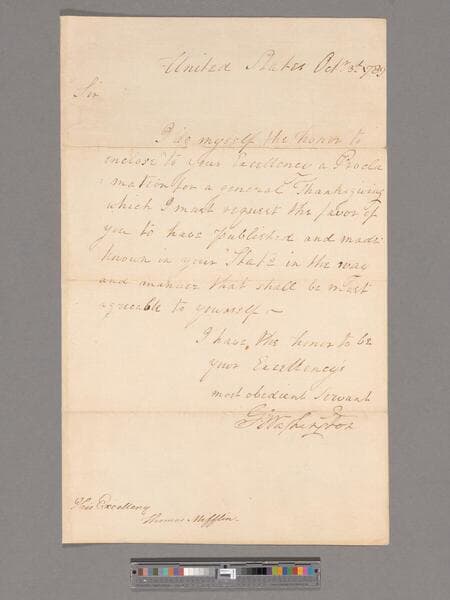 United States Octr. 3d. 1789
Sir
I do myself the honor to
enclose to your Excellency a Procla
mation for a general Thanksgiving
which I must request the favor of
you to have published and made
known in your State in the way
and manner that shall be most
agreeable to yourself ~
I have the honor to be
your Excellency's
most obedient Servant
G:Washington
His Excellency
Thomas Mifflin.